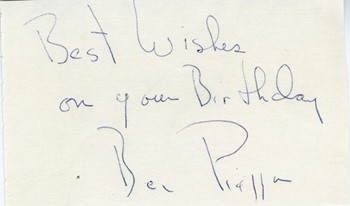 Best Wishes
on your Birthday
Ben Piazza